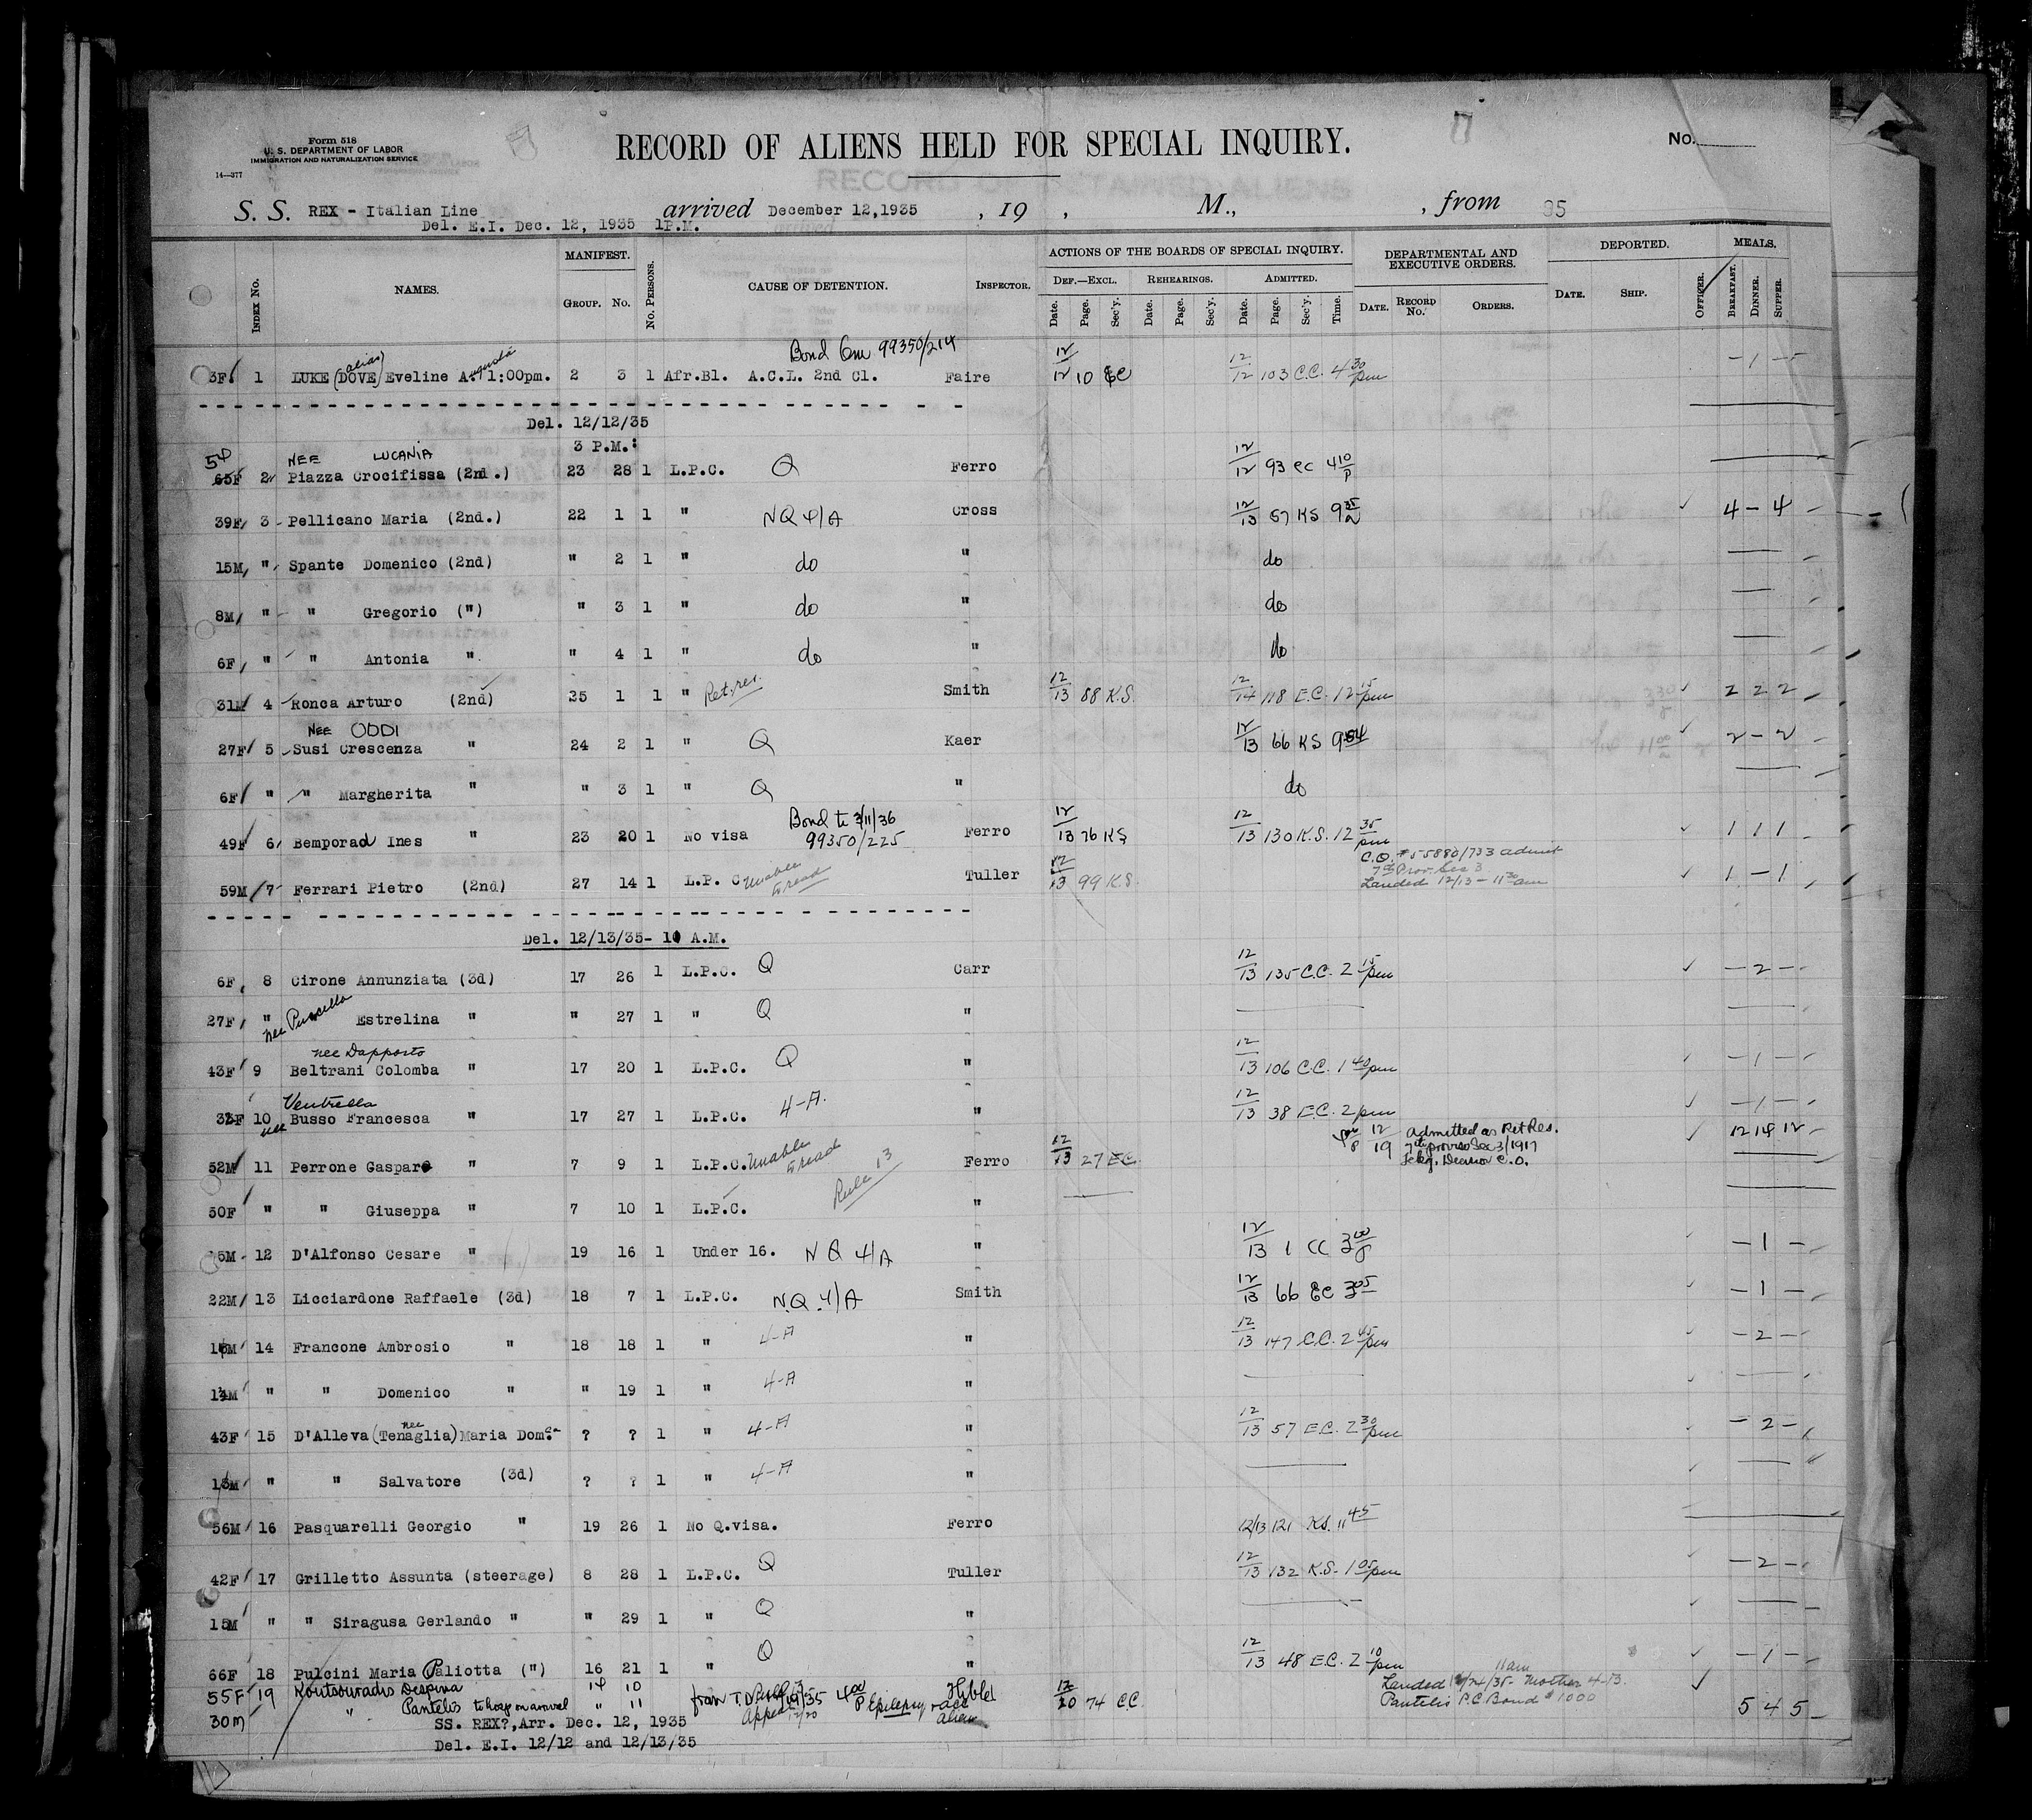 Form 518
U. S. DEPARTMENT OF LABOR
IMMIGRATION AND NATURALIZATION SERVICE
14—377
RECORD OF ALIENS HELD FOR SPECIAL INQUIRY.
No.
S. S. REX - Italian Line arrived December 12,1935 , 19 , M., , from 95
Del. E.I. Dec. 12, 1935 1P.M.
INDEX No. NAMES. MANIFEST. GROUP. No. No. PERSONS. CAUSE OF DETENTION. INSPECTOR. ACTIONS OF THE BOARDS OF SPECIAL INQUIRY. DEF.—EXCL. Date. Page. Sec'y. REHEARINGS. Date. Page. Sec'y. ADMITTED. Date. Page. Sec'y. Time. DEPARTMENTAL AND EXECUTIVE ORDERS. DATE. RECORD No. ORDERS. DEPORTED. DATE. SHIP. OFFICER. MEALS. BREAKFAST. DINNER. SUPPER.
Bond 6m 99350/214
3F 1 LUKE (alias DOVE) Eveline Augusta 1:00pm. 2 3 1 Afr.Bl. A.C.L. 2nd Cl. Faire 12/12 10 EC 12/12 103 C.C. 4 30 pm - 1 -
Del. 12/12/35
3 P.M.:
NEE LUCANIA
54 65F 2 Piazza Crocifissa (2nd.) 23 28 1 L.P.C. Q Ferro 12/12 93 EC 4 10 P
39F 3 Pellicano Maria (2nd.) 22 1 1 " NQ 4/A Cross 12/13 57 KS 9 35 4 - 4
15M " Spante Domenico (2nd) " 2 1 " do " do
8M " " Gregorio (") " 3 1 " do " do
6F " " Antonia " " 4 1 " do " do
31M 4 Ronca Arturo (2nd) 25 1 1 " Ret.res. Smith 12/13 88 K.S. 12/14 118 E.C. 12 15 pm 2 2 2
NEE ODDI
27F 5 Susi Crescenza " 24 2 1 " Q Kaer 12/13 66 KS 9 54 2 - 2
6F " " Margherita " " 3 1 " Q " do
49F 6 Bemporad Ines " 23 20 1 No visa Bond to 3/11/36 99350/225 Ferro 12/13 76 KS 12/13 130 K.S. 12 35 pm 1 1 1
59M 7 Ferrari Pietro (2nd) 27 14 1 L.P.C Unable to read Tuller 12/13 99 K.S. C.O. #55880/733 admit 7th Prov. Sec 3 Landed 12/13 - 11 30 am 1 - 1
Del. 12/13/35- 10 A.M.
6F 8 Cirone Annunziata (3d) 17 26 1 L.P.C. Q Carr 12/13 135 C.C. 2 15 pm - 2 -
27F " nee Estrelina " " 27 1 " Q "
nee Dapporto
43F 9 Beltrani Colomba " 17 20 1 L.P.C. Q " 12/13 106 C.C. 1 40 pm - 1 -
Ventrella
33F 10 nee Busso Francesca " 17 27 1 L.P.C. 4-A. " 12/13 38 E.C. 2 pm - 1 -
52M 11 Perrone Gaspare " 7 9 1 L.P.C. Unable to read Ferro 12/13 27 E.C. 12/19 Admitted as Ret Res. 7th proviso Sec 3/1917 C.O. 12 14 12
50F " " Giuseppa " 7 10 1 L.P.C. Rule 13 "
15M 12 D'Alfonso Cesare " 19 16 1 Under 16. N Q 4/A " 12/13 1 CC 3 00 P - 1 -
22M 13 Licciardone Raffaele (3d) 18 7 1 L.P.C. N.Q. 4/A Smith 12/13 66 EC 3 05 - 1 -
16M 14 Francone Ambrosio " 18 18 1 " 4-A " 12/13 147 C.C. 2 45 pm - 2 -
14M " " Domenico " " 19 1 " 4-A "
43F 15 D'Alleva (nee Tenaglia) Maria Dom.ca ? ? 1 " 4-A " 12/13 57 E.C. 2 30 pm - 2 -
13M " " Salvatore (3d) ? ? 1 " 4-A "
56M 16 Pasquarelli Georgio " 19 26 1 No Q.visa. Ferro 12/13 121 K.S. 11 45
42F 17 Grilletto Assunta (steerage) 8 28 1 L.P.C. Q Tuller 12/13 132 K.S. 1 05 pm - 2 -
15M " " Siragusa Gerlando " " 29 1 " Q "
66F 18 Pulcini Maria Paliotta (") 16 21 1 " Q " 12/13 48 E.C. 2 10 pm - 1 -
55F 19 Koutsouradis Despina 14 10 12/20 74 C.C. Landed 12/24/35 11am Mother 4-13.
30M " Pantelis to hosp on arrival " 11 Appeal 12/20 Epilepsy Pantelis P.C. Bond $1000 5 4 5
SS. REX?,Arr. Dec. 12, 1935
Del. E.I. 12/12 and 12/13/35